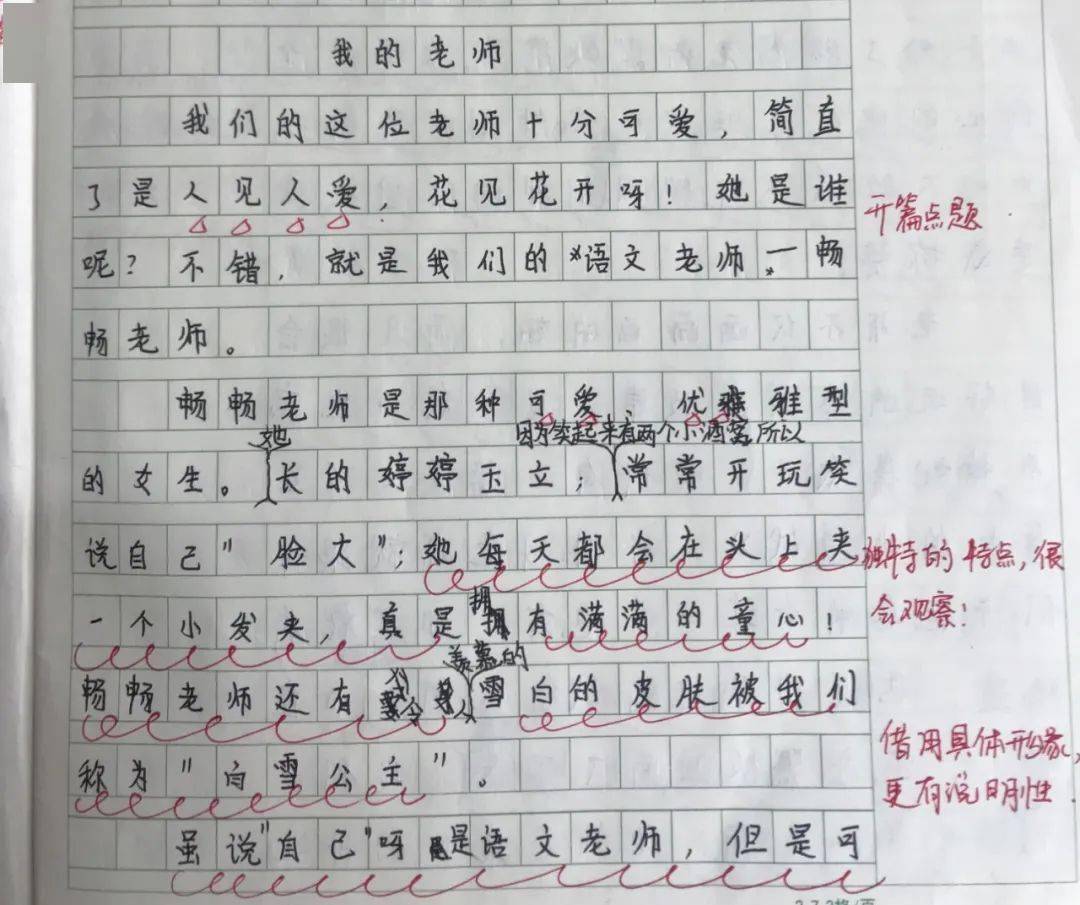 我的老师
我们的这位老师十分可爱，简直
了是人见人爱，花见花开呀！她是谁
开篇点题
呢？不错，就是我们的*语文老师一畅
畅老师。
畅畅老师是那种可爱、优雅雅型
她
因为笑起来有两个小酒窝，所以
的女生。长的婷婷玉立；常常开玩笑
说自己"脸大"；她每天都会在头上夹
独特的特点，很
会观察！
拥
一个小发夹，真是有满满的童心！
羡慕的
畅畅老师还有令人雪白的皮肤被我们
称为"白雪公主"。
借用具体形象，
更有说明性.
虽说"自己"呀是语文老师，但是可